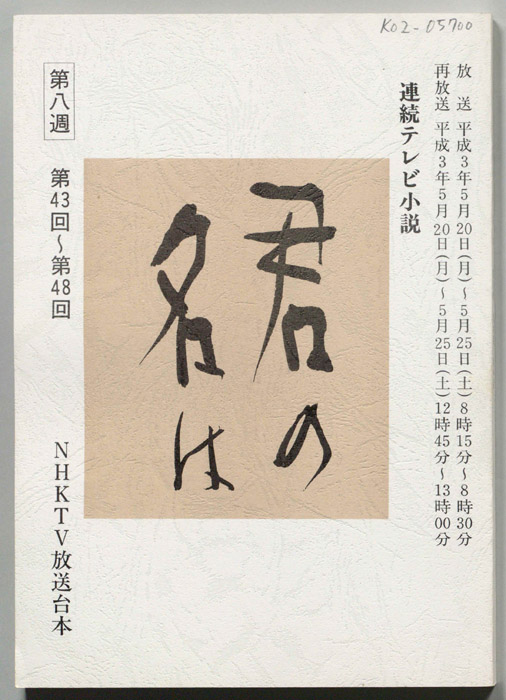 K02-05700
放 送 平成3年5月20日(月)〜5月25日(土)8時15分〜8時30分
再放送 平成3年5月20日(月)〜5月25日(土)12時45分〜13時00分
連続テレビ小説
君の
名は
第八週 第43回〜第48回
NHKTV放送台本